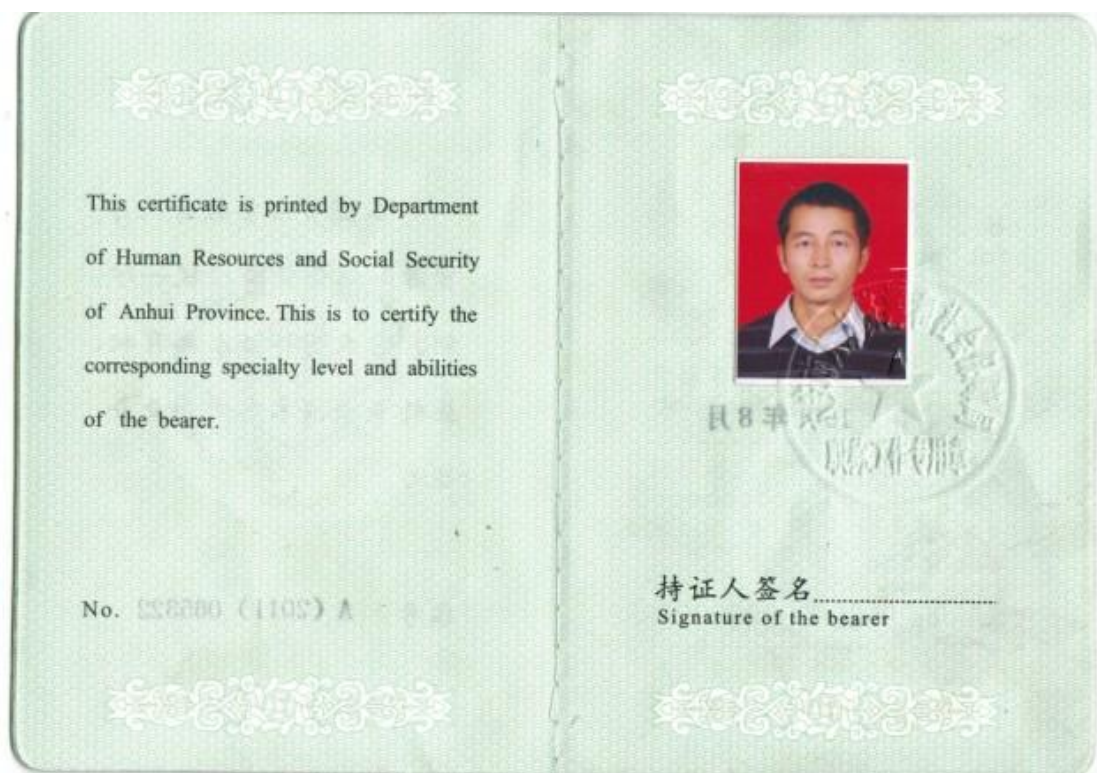 This certificate is printed by Department
of Human Resources and Social Security
of Anhui Province. This is to certify the
corresponding specialty level and abilities
of the bearer.
No.
持证人签名
Signature of the bearer